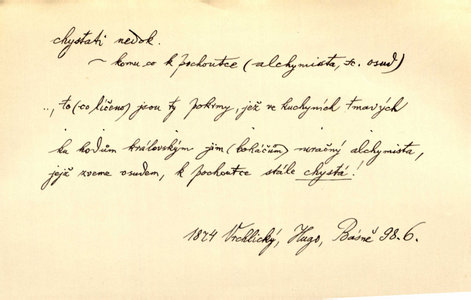 chystati nedok.
~ komu co k pochoutce (alchymista, tc. osud)
.., to (co líčeno) jsou ty pokrmy, jež ve kuchyních tmavých
ku hodům královským jim (boháčům) mračný alchymista,
jejž zveme osudem, k pochoutce stále chystá!
1874 Vrchlický, Hugo, Básně 98.6.